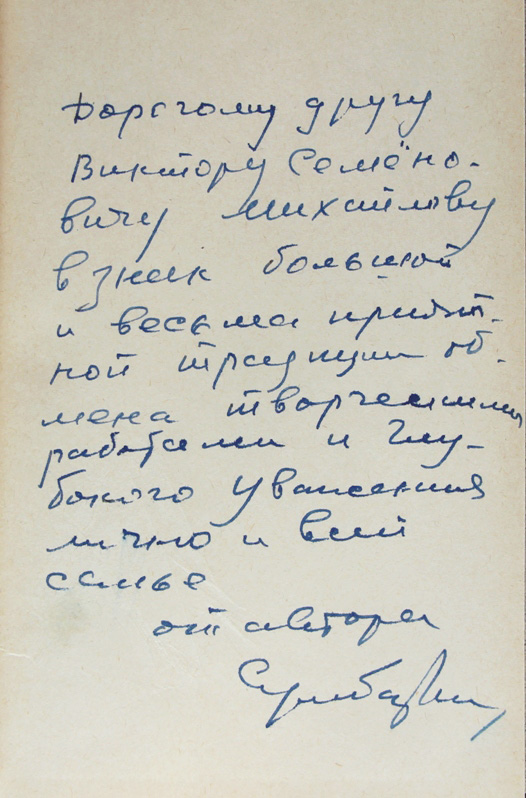 Дорогому другу
Виктору Семёно-
вичу Михайлову
в знак большой
и весьма прият-
ной традиции об-
мена творческими
работами и глу-
бокого уважения
лично и всей
семье
от автора